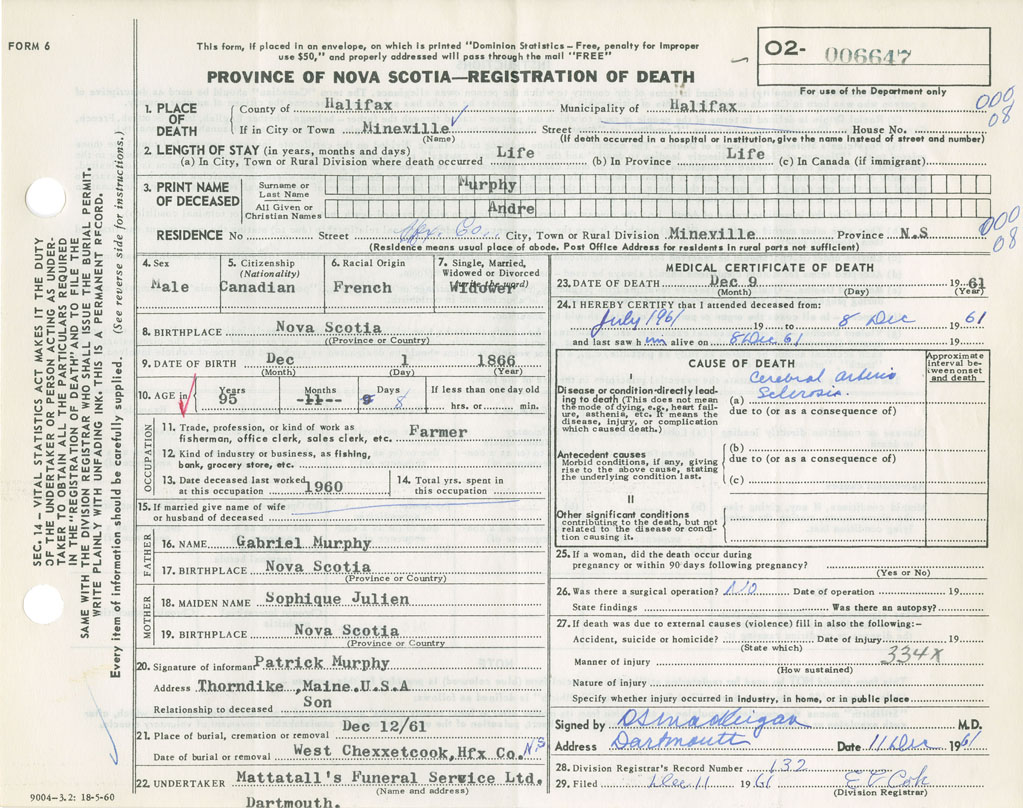 FORM 6
This form, if placed in an envelope, on which is printed "Dominion Statistics – Free, penalty for improper
use $50," and properly addressed will pass through the mail "FREE"
PROVINCE OF NOVA SCOTIA—REGISTRATION OF DEATH
02- 006647
For use of the Department only
000
08
1. PLACE OF DEATH
County of Halifax Municipality of Halifax
If in City or Town Mineville Street House No.
(Name) (If death occurred in a hospital or institution, give the name instead of street and number)
2. LENGTH OF STAY (in years, months and days)
(a) In City, Town or Rural Division where death occurred Life (b) In Province Life (c) In Canada (if immigrant)
3. PRINT NAME OF DECEASED
Surname or Last Name Murphy
All Given or Christian Names Andre
000
08
RESIDENCE No Street Hfx. Co. City, Town or Rural Division Mineville Province N.S
(Residence means usual place of abode. Post Office Address for residents in rural parts not sufficient)
4. Sex
Male
5. Citizenship
(Nationality)
Canadian
6. Racial Origin
French
7. Single, Married,
Widowed or Divorced
(write the word)
Widower
8. BIRTHPLACE Nova Scotia
((Province or Country)
9. DATE OF BIRTH Dec 1 1866
(Month) (Day) (Year)
10. AGE in
Years Months Days If less than one day old
95 -11- 8 hrs. or min.
OCCUPATION
11. Trade, profession, or kind of work as
fisherman, office clerk, sales clerk, etc. Farmer
12. Kind of industry or business, as fishing,
bank, grocery store, etc.
13. Date deceased last worked
at this occupation 1960
14. Total yrs. spent in
this occupation
15. If married give name of wife
or husband of deceased
FATHER
16. NAME Gabriel Murphy
17. BIRTHPLACE Nova Scotia
(Province or Country)
MOTHER
18. MAIDEN NAME Sophique Julien
19. BIRTHPLACE Nova Scotia
(Province or Country
20. Signature of informant Patrick Murphy
Address Thorndike, Maine, U.S.A
Relationship to deceased Son
21. Place of burial, cremation or removal Dec 12/61
Date of burial or removal West Chexxetcook, Hfx Co. N.S
22. UNDERTAKER Mattatall's Funeral Service Ltd.
(Name and address)
Dartmouth.
MEDICAL CERTIFICATE OF DEATH
23. DATE OF DEATH Dec 9 19 61
(Month) (Day) (Year)
24. I HEREBY CERTIFY that I attended deceased from:
July 1961 19 to 8 Dec 1961
and last saw him alive on 8 Dec 61 19
CAUSE OF DEATH
Approximate
interval be-
tween onset
and death
I
Disease or condition directly lead-
ing to death (This does not mean
the mode of dying, e.g., heart fail-
ure, asthenia, etc. It means the
disease, injury, or complication
which caused death.)
Cerebral arterio
(a) Sclerosis
due to (or as a consequence of)
Antecedent causes
Morbid conditions, if any, giving
rise to the above cause, stating
the underlying condition last.
(b)
due to (or as a consequence of)
(c)
II
Other significant conditions
contributing to the death, but not
related to the disease or condi-
tion causing it.
25. If a woman, did the death occur during
pregnancy or within 90 days following pregnancy?
(Yes or No)
26. Was there a surgical operation? NO Date of operation 19
State findings Was there an autopsy?
27. If death was due to external causes (violence) fill in also the following:–
Accident, suicide or homicide? Date of injury 19
(State which)
334X
Manner of injury
(How sustained)
Nature of injury
Specify whether injury occurred in industry, in home, or in public place
Signed by DS MacKeigan M.D.
Address Dartmouth Date 11 Dec 1961
28. Division Registrar's Record Number 132
29. Filed Dec 11 1961
(Division Registrar)
SEC. 14 – VITAL STATISTICS ACT MAKES IT THE DUTY
OF THE UNDERTAKER OR PERSON ACTING AS UNDER-
TAKER TO OBTAIN ALL THE PARTICULARS REQUIRED
IN THE "REGISTRATION OF DEATH" AND TO FILE THE
SAME WITH THE DIVISION REGISTRAR WHO SHALL ISSUE THE BURIAL PERMIT.
WRITE PLAINLY WITH UNFADING INK. THIS IS A PERMANENT RECORD.
Every item of information should be carefully supplied. (See reverse side for instructions.)
9004-3.2: 18-5-60